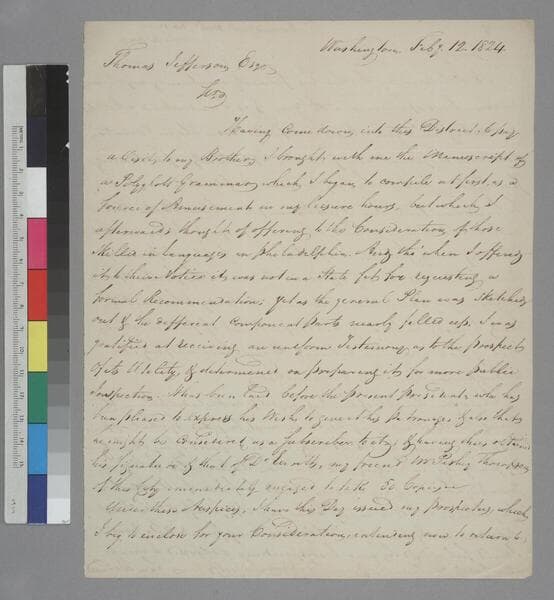 Washington Feby. 12. 1824.
Thomas Jefferson Esqr.
Sir
Having come down into this District to pay
a Visit to my Brother, I brought with me the Manuscript of
a Polyglott Grammar, which I began to compile at first as a
source of Amusement in my leisure hours, but which I
afterwards thought of offering to the Consideration of those
skilled in languages in Philadelphia. And tho' when I offered
it to their Notice it was not in a State fit for requesting a
formal Recommendation; yet as the general Plan was sketched
out & the different component parts nearly filled up, I was
gratified at receiving an uniform Testimony as to the prospects
of its Utility, & determined on preparing it for more public
Inspection. It has been laid before the present President, who has
been pleased to express his Wish to give it his Patronage & also that
he might be considered as a Subscriber to it; & having thus obtained
his Signature & that of my friend Mr. Pishey Thompson
of this City immediately engaged to take 50 Copies
Under these Auspices, I have this Day issued my Prospectus, which
I beg to enclose for your Consideration, intending now to return to